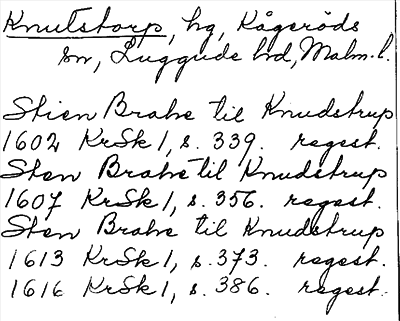 Knutstorp, hg, Kågeröds
sn, Luggude hd, Malm. l.
Stien Brahe til Knudstrup
1602 KrSk 1, s. 339. regest.
Sten Brahe til Knudstrup
1607 KrSk 1, s. 356. regest.
Sten Brahe til Knudstrup
1613 KrSk 1, s. 373. regest.
1616 KrSk 1, s. 386. regest.